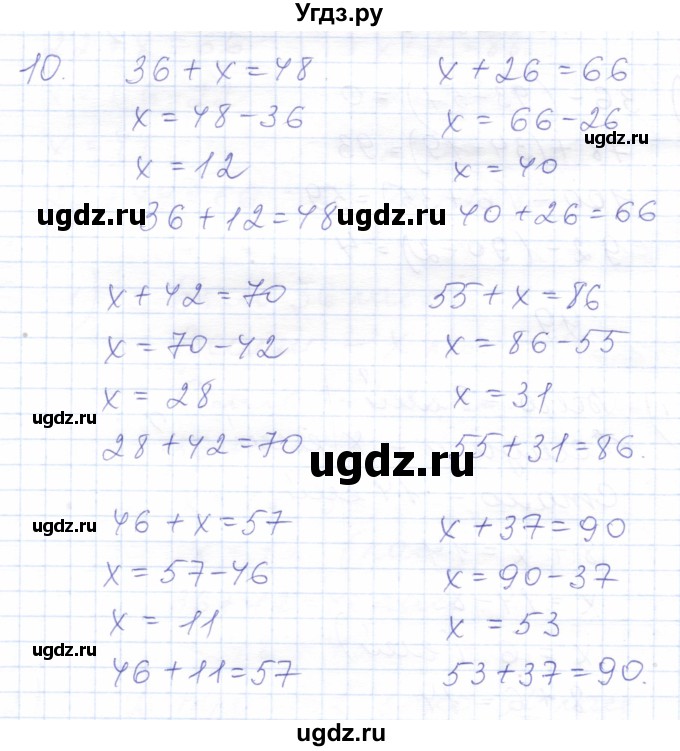 Угдз.ру
10. 36 + x = 48
x = 48 - 36
x = 12
36 + 12 = 48
x + 26 = 66
x = 66 - 26
x = 40
40 + 26 = 66
ugdz.ru
ugdz.ru
ugdz.ru
x + 42 = 70
x = 70 - 42
x = 28
28 + 42 = 70
55 + x = 86
x = 86 - 55
x = 31
55 + 31 = 86.
ugdz.ru
ugdz.ru
46 + x = 57
x = 57 - 46
x = 11
46 + 11 = 57
x + 37 = 90
x = 90 - 37
x = 53
53 + 37 = 90.
ugdz.ru
ugdz.ru
ugdz.ru